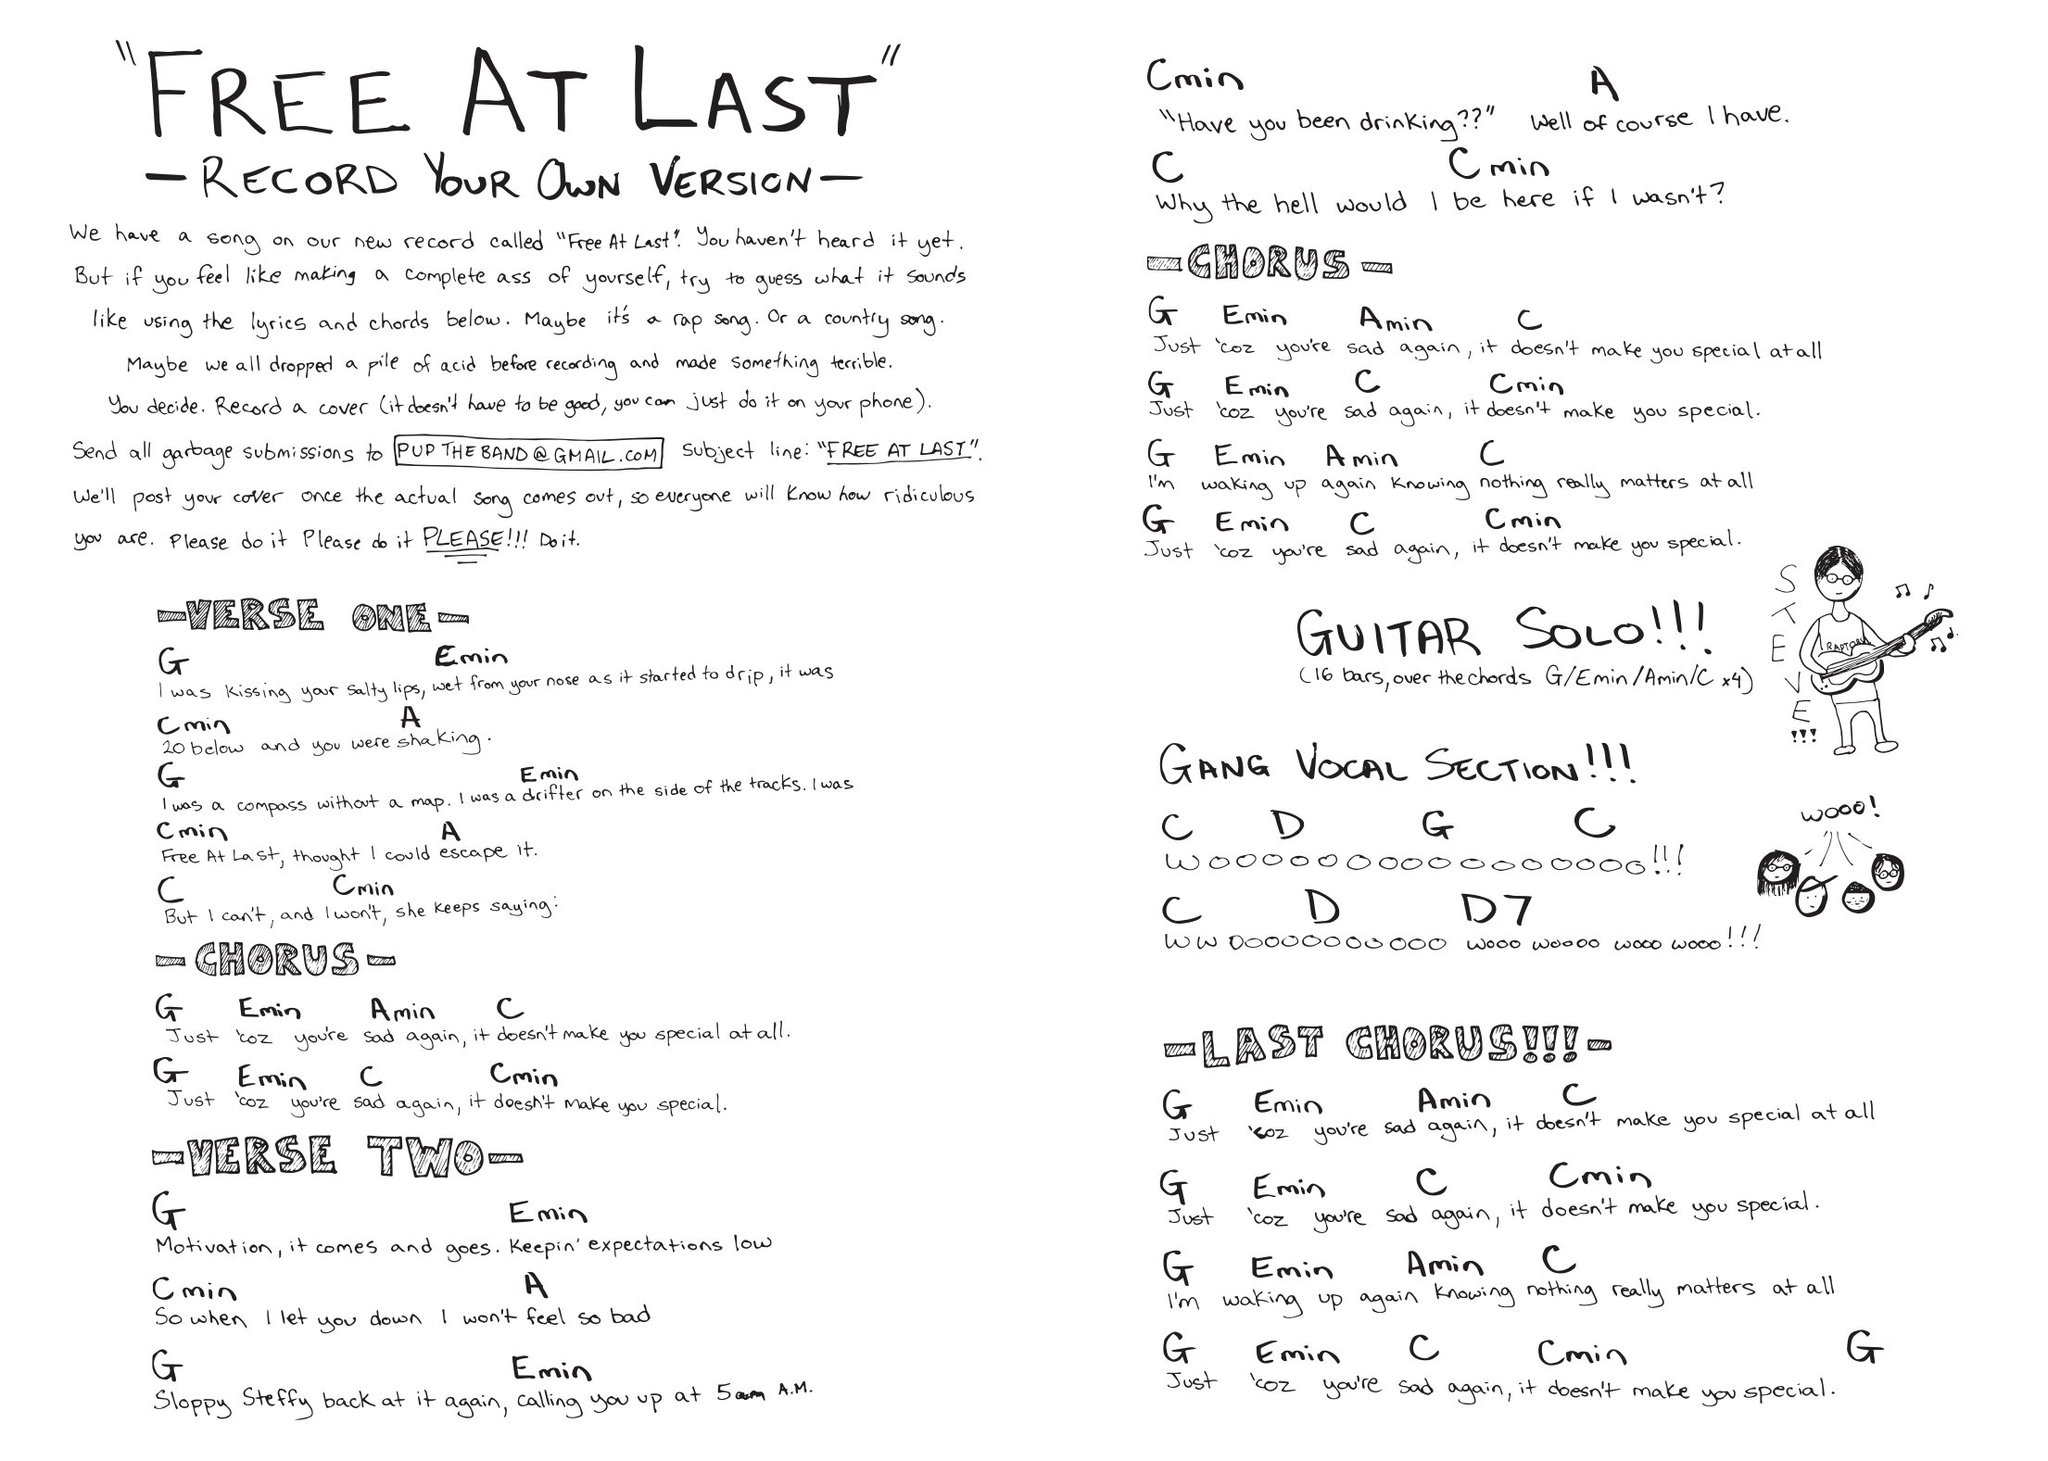 "FREE AT LAST"
-RECORD YOUR OWN VERSION-
We have a song on our new record called "Free At Last". You haven't heard it yet.
But if you feel like making a complete ass of yourself, try to guess what it sounds
like using the lyrics and chords below. Maybe it's a rap song. Or a country song.
Maybe we all dropped a pile of acid before recording and made something terrible.
You decide. Record a cover (it doesn't have to be good, you can just do it on your phone).
Send all garbage submissions to PUPTHEBAND@GMAIL.COM Subject line: "FREE AT LAST".
We'll post your cover once the actual song comes out, so everyone will know how ridiculous
you are. Please do it Please do it PLEASE!!! Do it.
-VERSE ONE-
G Emin
I was kissing your salty lips, wet from your nose as it started to drip, it was
Cmin A
20 below and you were shaking.
G Emin
I was a compass without a map. I was a drifter on the side of the tracks. I was
Cmin A
Free At Last, thought I could escape it.
C Cmin
But I can't, and I won't, she keeps saying:
-CHORUS-
G Emin Amin C
Just 'coz you're sad again, it doesn't make you special at all.
G Emin C Cmin
Just 'coz you're sad again, it doesn't make you special.
-VERSE TWO-
G Emin
Motivation, it comes and goes. Keepin' expectations low
Cmin A
So when I let you down I won't feel so bad
G Emin
Sloppy Steffy back at it again, calling you up at 5 A.M.
Cmin A
"Have you been drinking??" Well of course I have.
C Cmin
Why the hell would I be here if I wasn't?
-CHORUS-
G Emin Amin C
Just 'coz you're sad again, it doesn't make you special at all
G Emin C Cmin
Just 'coz you're sad again, it doesn't make you special.
G Emin Amin C
I'm waking up again knowing nothing really matters at all
G Emin C Cmin
Just 'coz you're sad again, it doesn't make you special.
GUITAR SOLO!!!
(16 bars, over the chords G/Emin/Amin/C x4)
STEVE!!!
RAPTORS
GANG VOCAL SECTION!!!
C D G C
WOOOOOOOOOOOOOOOO!!!
wooo!
C D D7
WWOOOOOOOOOOO wooo woooo wooo wooo!!!
-LAST CHORUS!!!-
G Emin Amin C
Just 'coz you're sad again, it doesn't make you special at all
G Emin C Cmin
Just 'coz you're sad again, it doesn't make you special.
G Emin Amin C
I'm waking up again knowing nothing really matters at all
G Emin C Cmin G
Just 'coz you're sad again, it doesn't make you special.